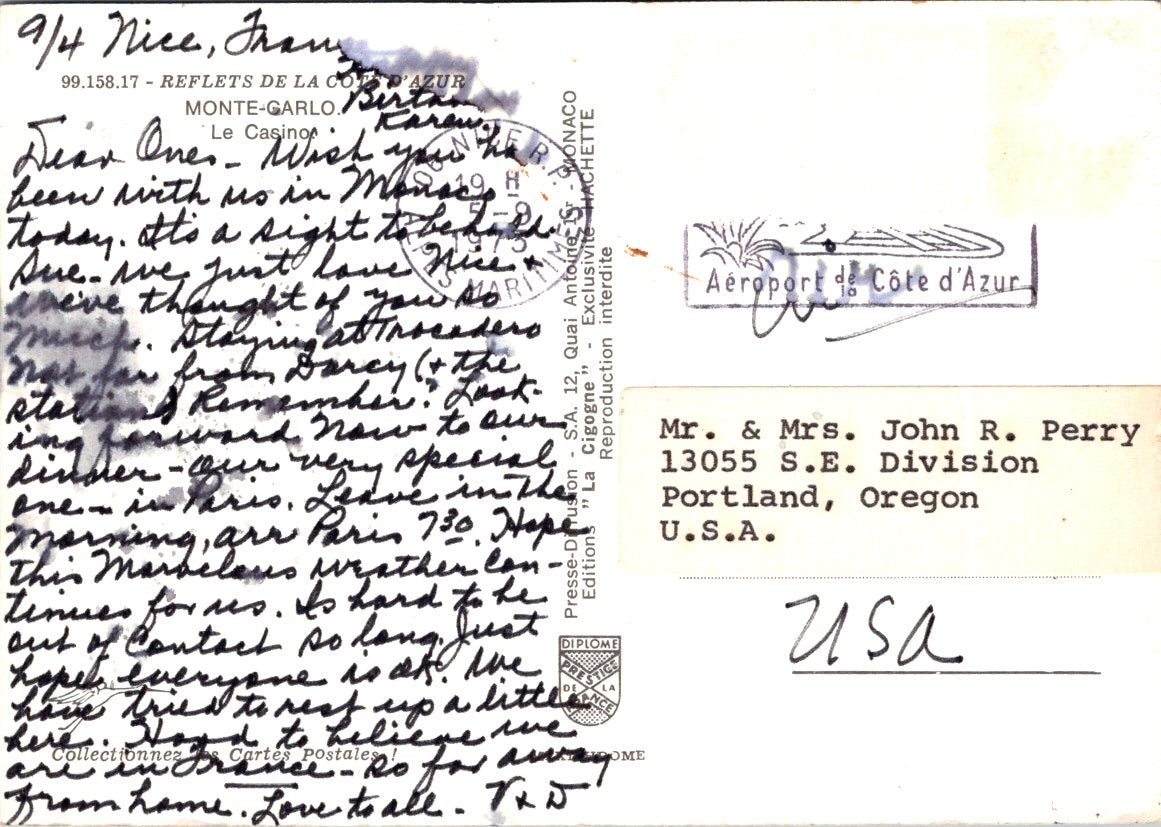 9/4 Nice, Fran
99.158.17 - REFLETS DE LA COTE D'AZUR
MONTE-CARLO.
Le Casino
Bertam
Karen.
Dear Ones - Wish you ha
been with us in Monaco
today. It's a sight to behold.
Sue - we just love Nice +
we've thought of you so
much. Staying at Trocadero
not far from Darcy (+ the
station) Remember? Look-
ing forward now to our
dinner - our very special
one - in Paris. Leave in the
morning, arr Paris 7 30. Hope
this marvelous weather con-
tinues for us. Is hard to be
out of contact so long. Just
hope everyone is ok. We
have tried to rest up a little
here. Hard to believe we
are in France - so far away
from home. Love to all - V + D
Collectionnez les Cartes Postales !
Presse-Diffusion - S.A. 12, Quai Antoine 1er - MONACO
Editions "La Cigogne" - Exclusivité HACHETTE
Reproduction interdite
DIPLOME
PRESTIGE
DE LA
FRANCE
06 NICE R.P.
19 H
5 - 9
1973
ALPES MARITIMES
Aéroport de la Côte d'Azur
Mr. & Mrs. John R. Perry
13055 S.E. Division
Portland, Oregon
U.S.A.
USA